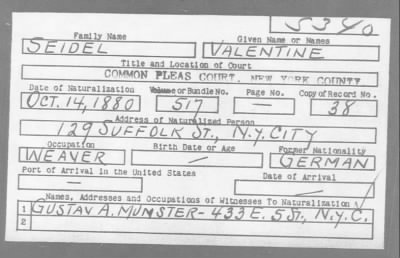 S340
Family Name Given Name or Names
SEIDEL VALENTINE
Title and Location of Court
COMMON PLEAS COURT, NEW YORK COUNTY
Date of Naturalization Volume or Bundle No. Page No. Copy of Record No.
OCT. 14, 1880 517 — 38
Address of Naturalized Person
129 SUFFOLK ST., N.Y. CITY
Occupation Birth Date or Age Former Nationality
WEAVER — GERMAN
Port of Arrival in the United States Date of Arrival
— —
Names, Addresses and Occupations of Witnesses To Naturalization
1 GUSTAV A. MUNSTER - 433 E. 5 ST., N.Y.C.
2